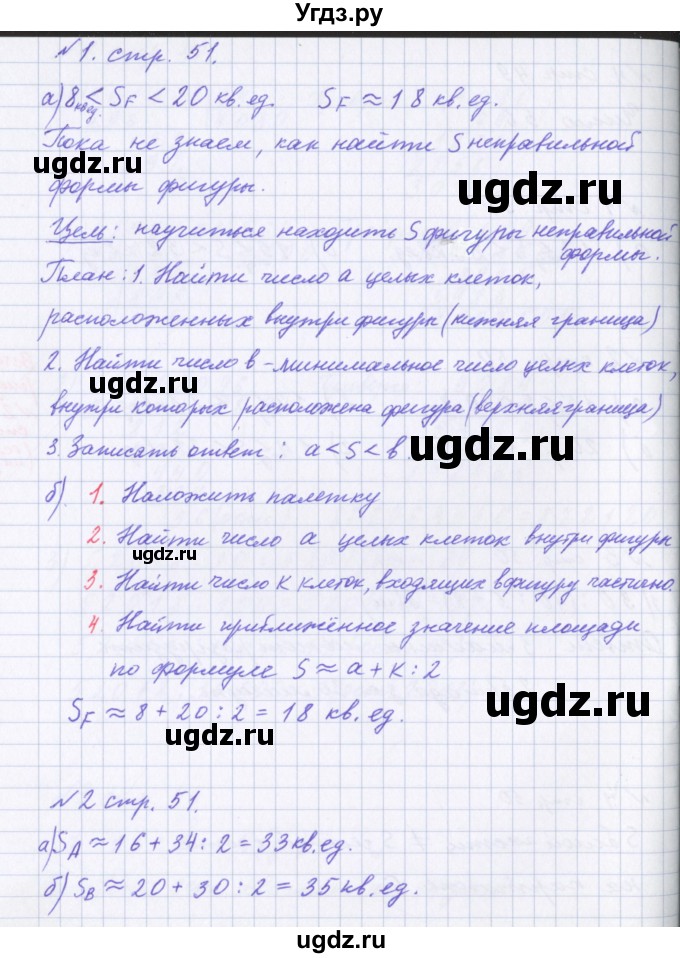 Угдз.ру
№1. стр. 51.
а) 8 кв.ед. < SF < 20 кв.ед. SF ≈ 18 кв.ед.
Пока не знаем, как найти S неправильной
ugdz.ru
ugdz.ru
формы фигуры.
Цель: научиться находить S фигуры неправильной
формы.
План: 1. Найти число а целых клеток,
расположенных внутри фигуры (нижняя граница)
2. Найти число в - минимальное число целых клеток,
ugdz.ru
внутри которых расположена фигура (верхняя граница)
3. Записать ответ: а < S < в
ugdz.ru
б) 1. Наложить палетку
2. Найти число а целых клеток внутри фигуры
ugdz.ru
3. Найти число К клеток, входящих в фигуру частично.
4. Найти приближённое значение площади
ugdz.ru
по формуле S ≈ а + К : 2
ugdz.ru
SF ≈ 8 + 20 : 2 = 18 кв.ед.
ugdz.ru
№2 стр. 51.
а) SA ≈ 16 + 34 : 2 = 33 кв.ед.
ugdz.ru
б) SB ≈ 20 + 30 : 2 = 35 кв.ед.
ugdz.ru